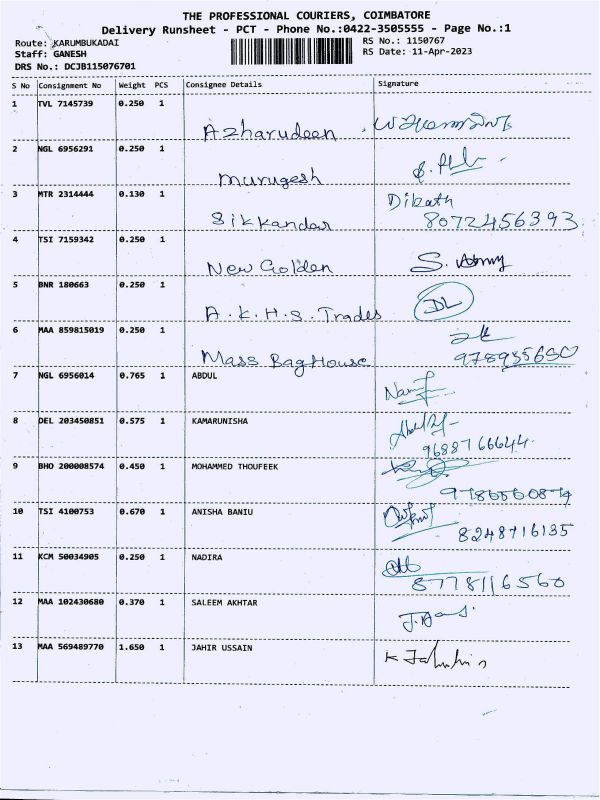 THE PROFESSIONAL COURIERS, COIMBATORE
Delivery Runsheet - PCT - Phone No.:0422-3505555 - Page No.:1
Route: KARUMBUKADAI RS No.: 1150767
Staff: GANESH RS Date: 11-Apr-2023
DRS No.: DCJB115076701
S No Consignment No Weight PCS Consignee Details Signature
1 TVL 7145739 0.250 1
Azharudeen
2 NGL 6956291 0.250 1
Murugesh
3 MTR 2314444 0.130 1 Dilbath
Sikkandar 8072456393
4 TSI 7159342 0.250 1
New Golden
5 BNR 180663 0.250 1 DL
A.K.H.S. Trades
6 MAA 859815019 0.250 1
Mass BagHouse 978935650
7 NGL 6956014 0.765 1 ABDUL
8 DEL 203450851 0.575 1 KAMARUNISHA
9688766644
9 BHO 200008574 0.450 1 MOHAMMED THOUFEEK
10 TSI 4100753 0.670 1 ANISHA BANIU
8248716135
11 KCM 50034905 0.250 1 NADIRA
8778116560
12 MAA 102430680 0.370 1 SALEEM AKHTAR
13 MAA 569489770 1.650 1 JAHIR USSAIN